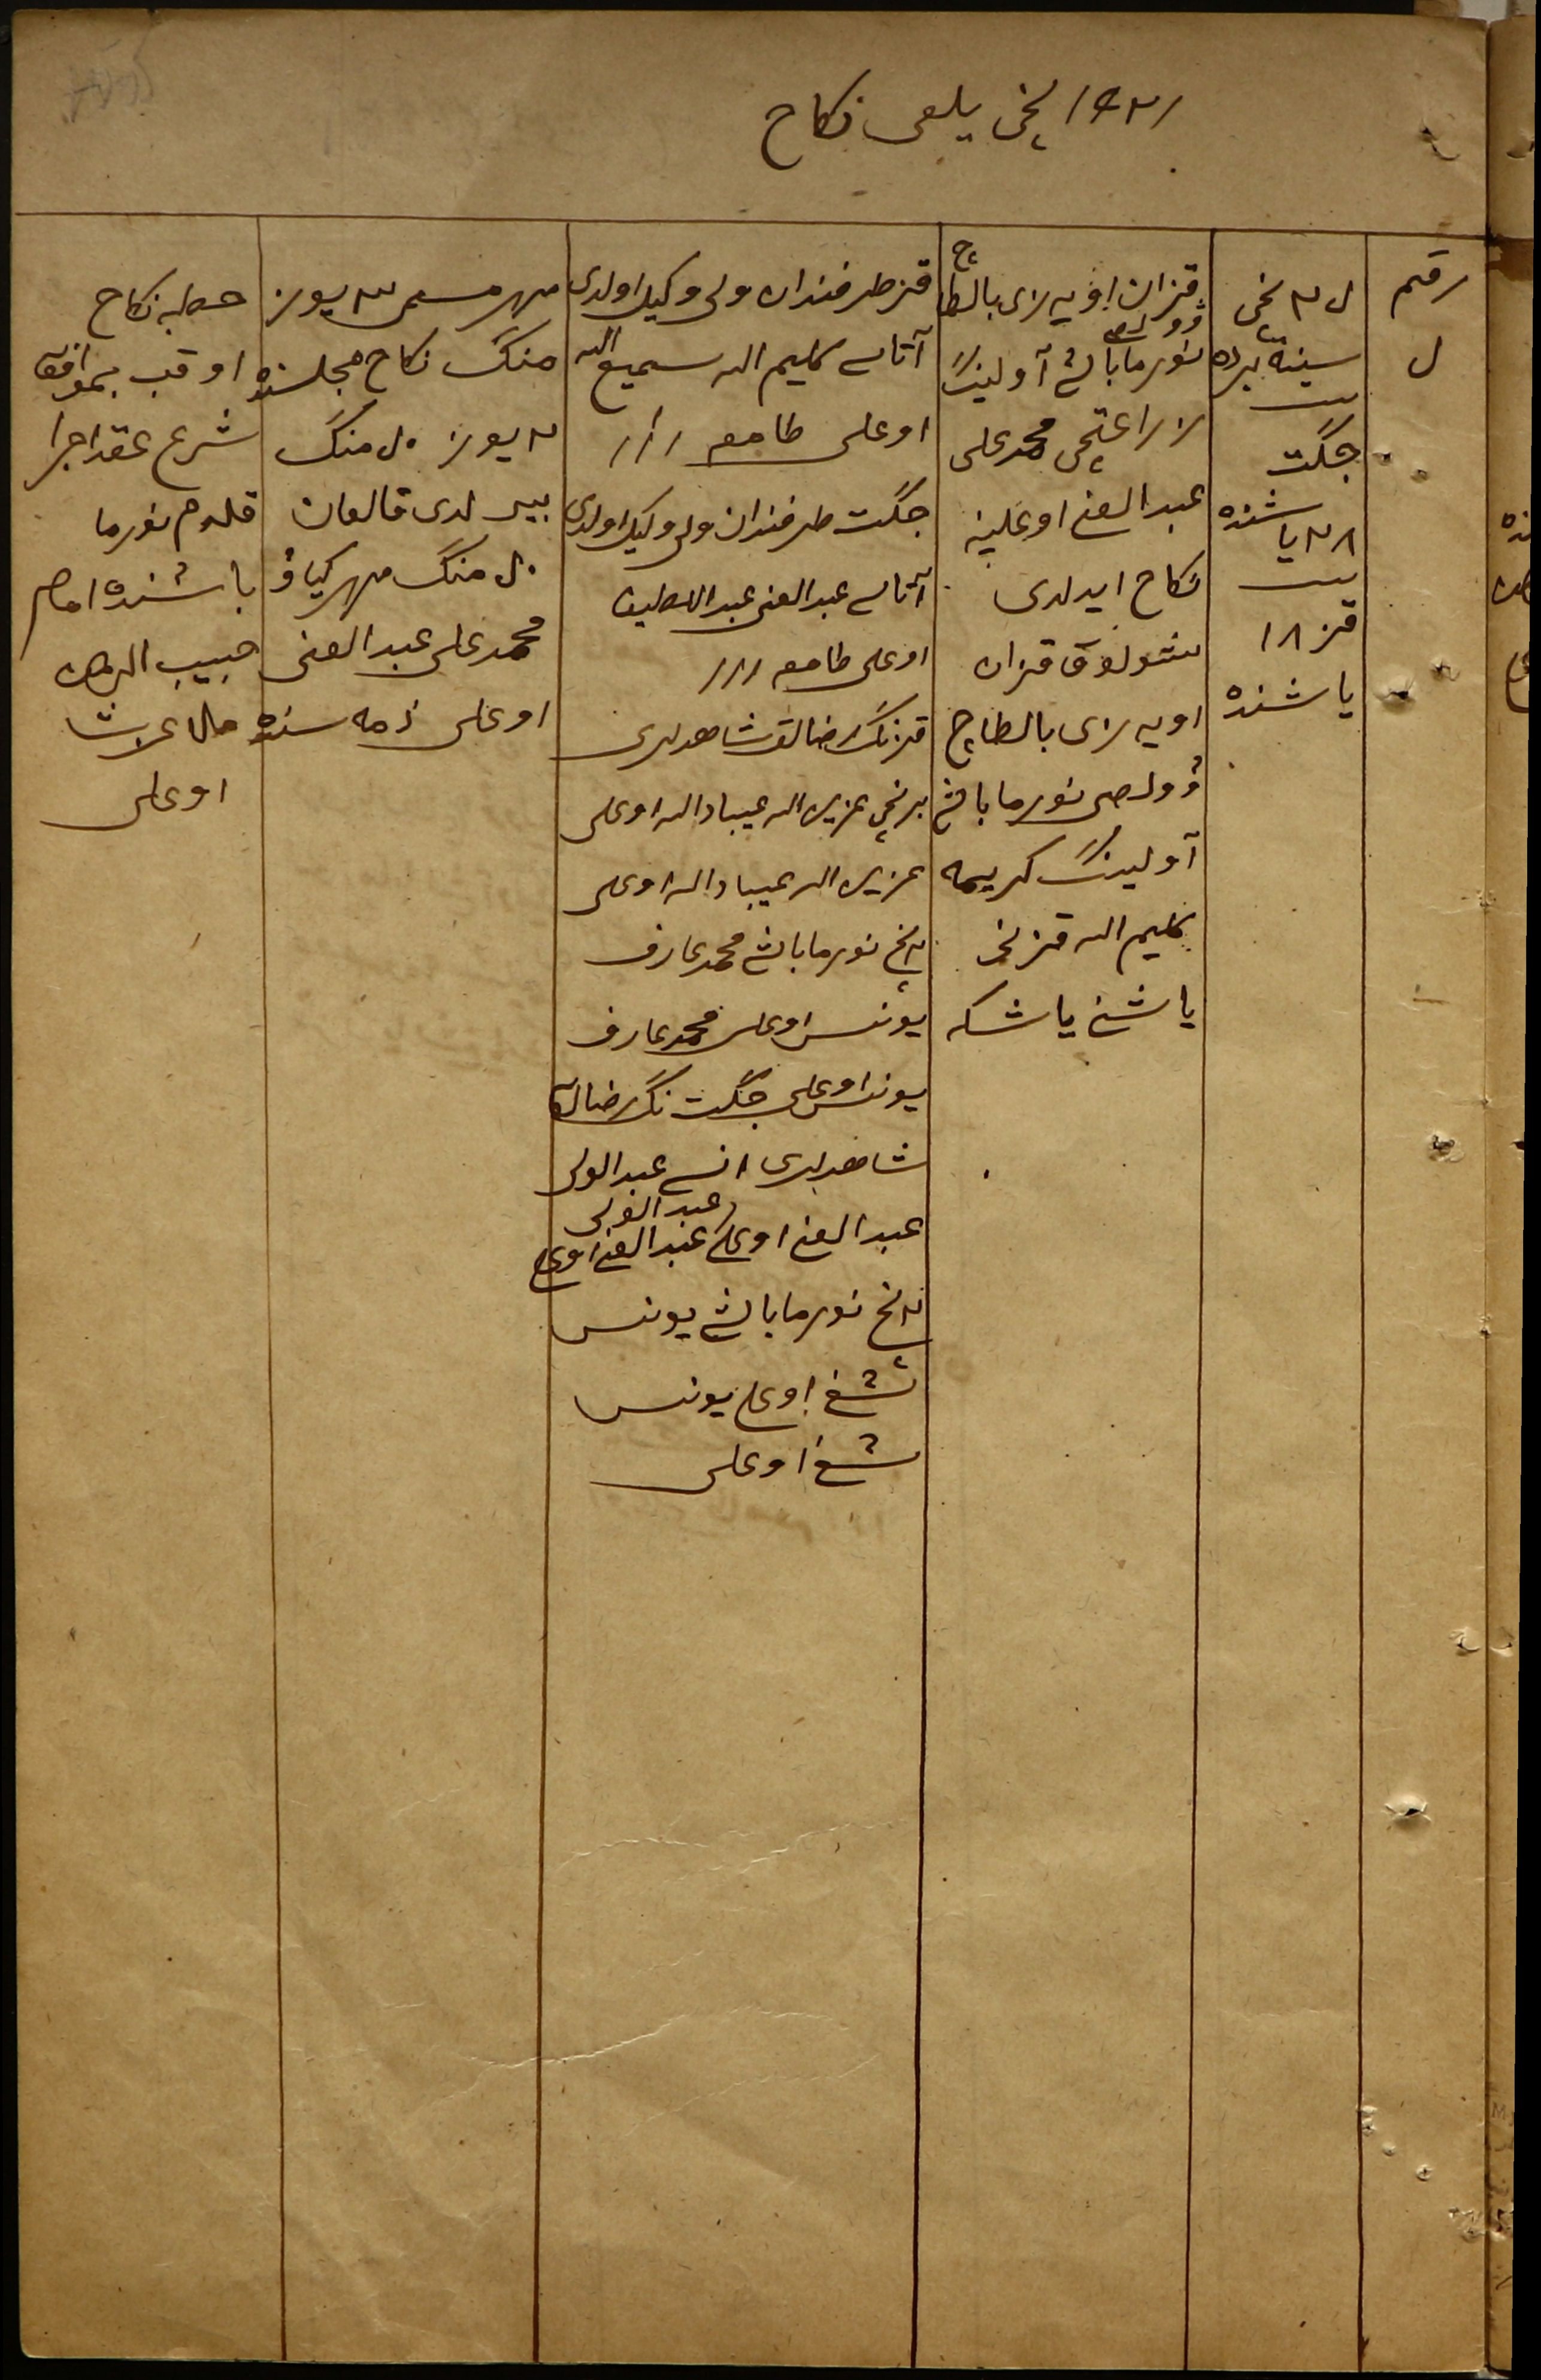 ١٩٢١ نچی یلغی نکاح
رقم
ل
ل ٢ نچی
سینتەبرده
جگت
٢٨ یاشنده
قز ١٨
یاشنده
قزان اویه زی بالطاچ
نورما باش آولینڭ
زراعتچی محمدعلی
عبدالغنی اوغلینه
نکاح ایدلدی
شولوق قزان
اویه زی بالطاچ
وولصی نورما باش
آولینڭ کریمه
کلیم الله قزنی
یاشنی یاشکه
قز طرفندان ولی وکیل اولدی
آتاسی کلیم الله سمیع الله
اوغلی طامعه ///
جگت طرفندان ولی وکیل اولدی
آتاسی عبدالغنی عبداللطیف
اوغلی طامعه ///
قزنڭ رضالق شاهدلری
برنچی عزیزالله عیبادالله اوغلی
عزیزالله عیبادالله اوغلی
٢ نچی نورما باش محمدعارف
یونس اوغلی محمدعارف
یونس اوغلی جگت نڭ رضالق
شاهدلری انسی عبدالولی
عبدالغنی اوغلی عبدالولی عبدالغنی اوغلی
٢ نچی نورما باش یونس
اوغلی یونس
اوغلی
مهر مسمی ٣ یوز
منڭ نکاح مجلسنده
٢ یوز ٥٠ منڭ
بیرلدی قالغان
٥٠ منڭ مهر کیاو
محمدعلی عبدالغنی
اوغلی ذمه سنده
خطبه نکاح
اوقب بموافق
شرع عقد اجرا
قلدم نورما
باشنده امام
حبیب الرحمن
ملا عزت
اوغلی